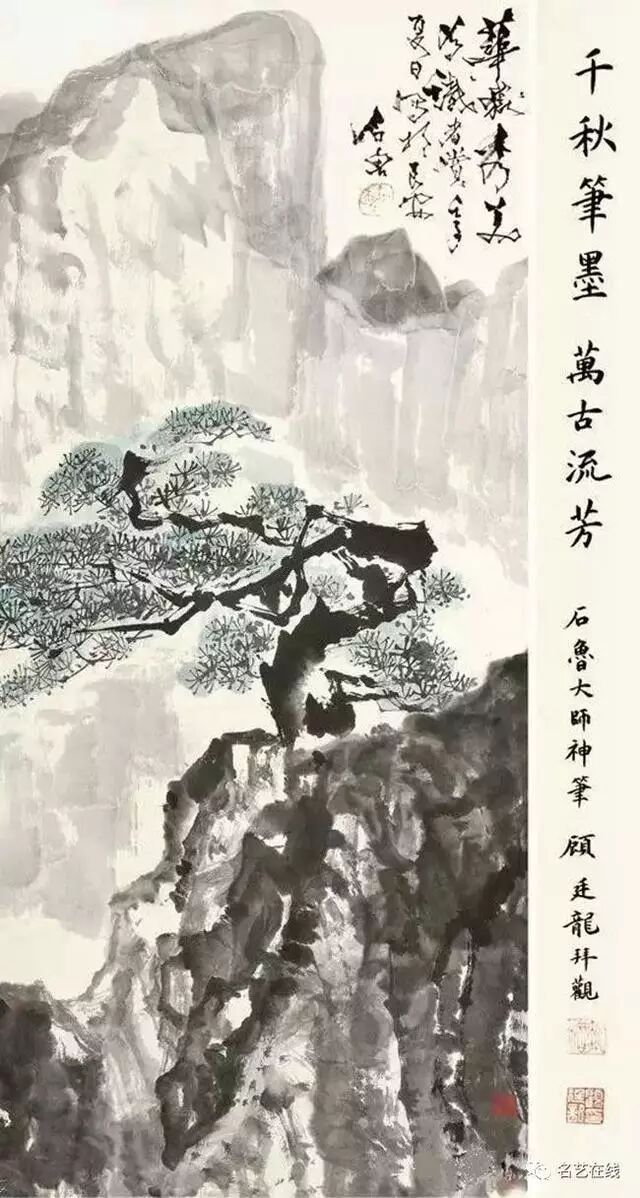 千秋筆墨 萬古流芳 石魯大師神筆 顧廷龍拜觀
華嶽秀美
識者賞
夏日寫於長安
石魯
名艺在线